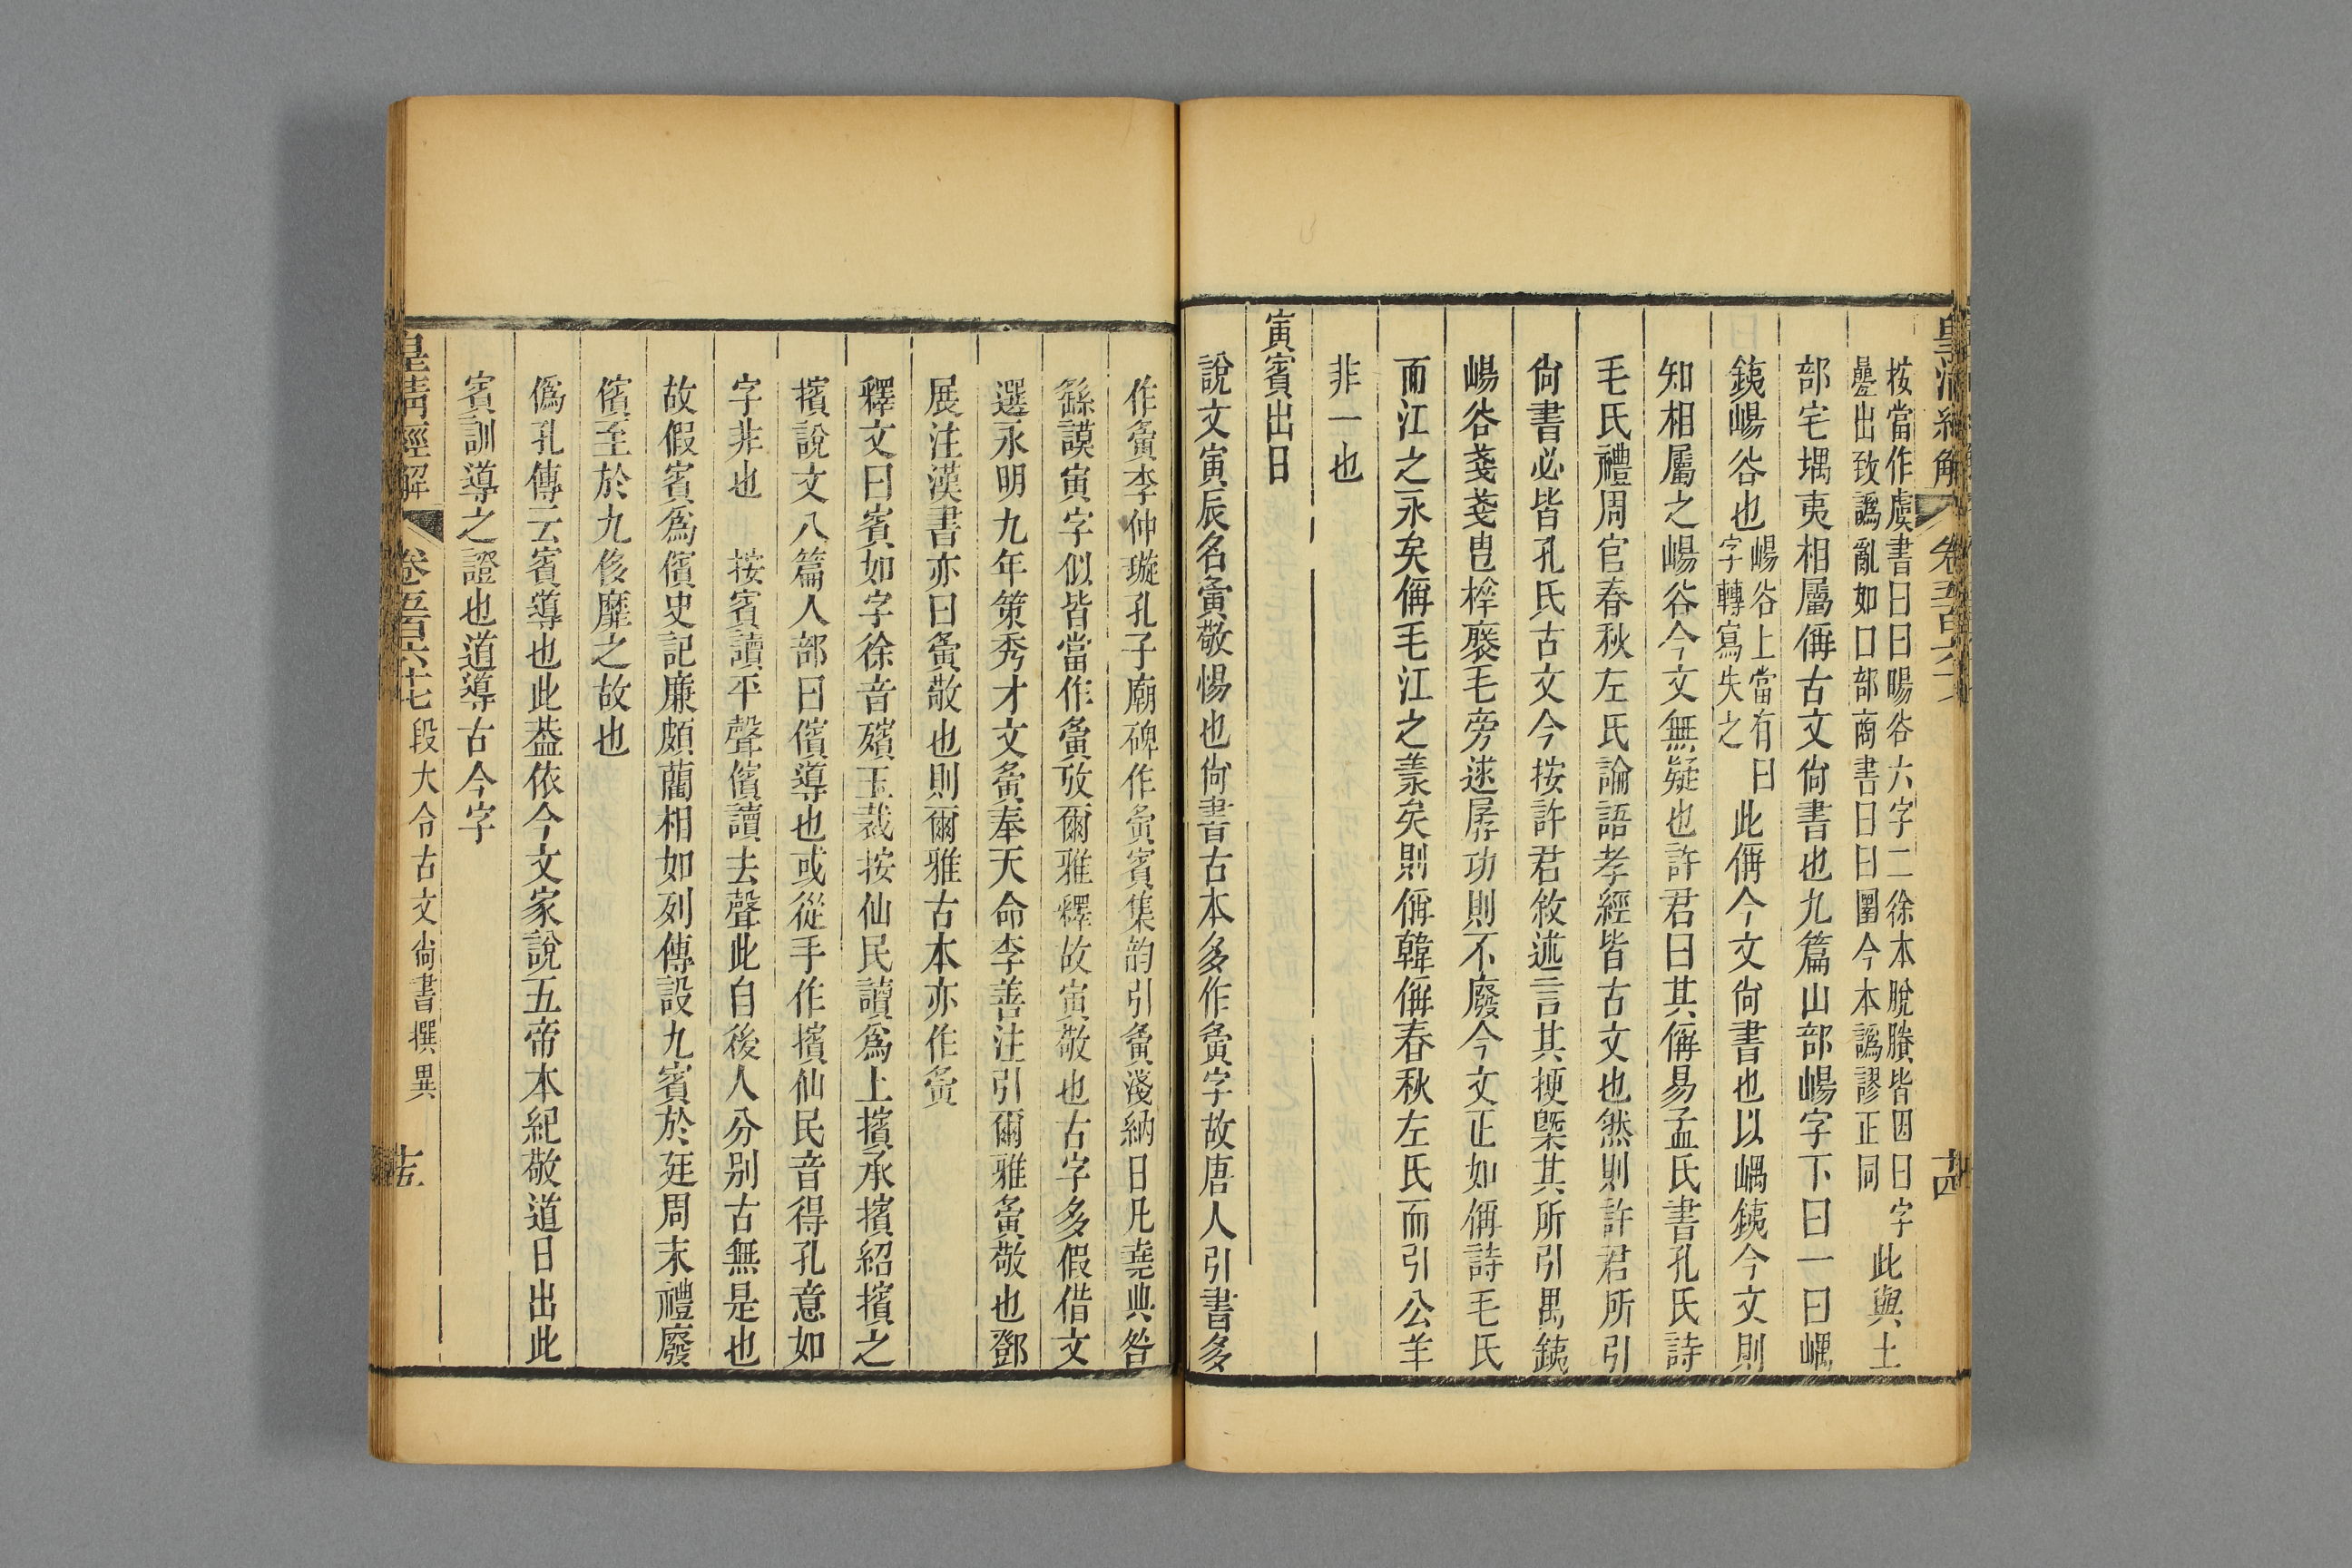 皇清經解 卷五百六十七 十四
按當作虞書曰曰暘谷六字二徐本脫賸皆因曰字
㬪出致譌亂如口部圛商書曰曰圛今本譌謬正同
此與土
部宅堣夷相屬偁古文尙書也九篇山部崵字下曰一曰嵎
銕崵谷也
崵谷上當有曰
字轉寫失之
此偁今文尙書也以嵎銕今文則
知相屬之崵谷今文無疑也許君曰其偁易孟氏書孔氏詩
毛氏禮周官春秋左氏論語孝經皆古文也然則許君所引
尙書必皆孔氏古文今按許君敘述言其梗槩其所引禺銕
崵谷戔戔㫩榁褎毛旁逑孱功則不廢今文正如偁詩毛氏
而江之永矣偁毛江之羕矣則偁韓偁春秋左氏而引公羊
非一也
寅賓出日
說文寅辰名夤敬惕也尙書古本多作夤字故唐人引書多
作夤李仲璇孔子廟碑作夤賓集韵引夤淺納日凡堯典咎
繇謨寅字似皆當作夤攷爾雅釋故寅敬也古字多假借文
選永明九年策秀才文夤奉天命李善注引爾雅夤敬也鄧
展注漢書亦曰夤敬也則爾雅古本亦作夤
釋文曰賓如字徐音殯玉裁按仙民讀爲上擯承擯紹擯之
擯說文八篇人部曰儐導也或從手作擯仙民音得孔意如
字非也 按賓讀平聲儐讀去聲此自後人分别古無是也
故假賓爲儐史記廉頗藺相如列傳設九賓於廷周末禮廢
儐至於九侈靡之故也
僞孔傳云賓導也此葢依今文家說五帝本紀敬道日出此
賓訓導之證也道導古今字
皇清經解 卷五百六十七 段大令古文尙書撰異 十五